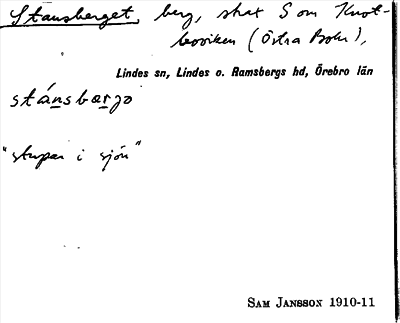 Stansberget, berg, strax S om Knot-
beviken (Östra Bohr),
Lindes sn, Lindes o. Ramsbergs hd, Örebro län
stánsbarjo
"stupar i sjön"
SAM JANSSON 1910-11